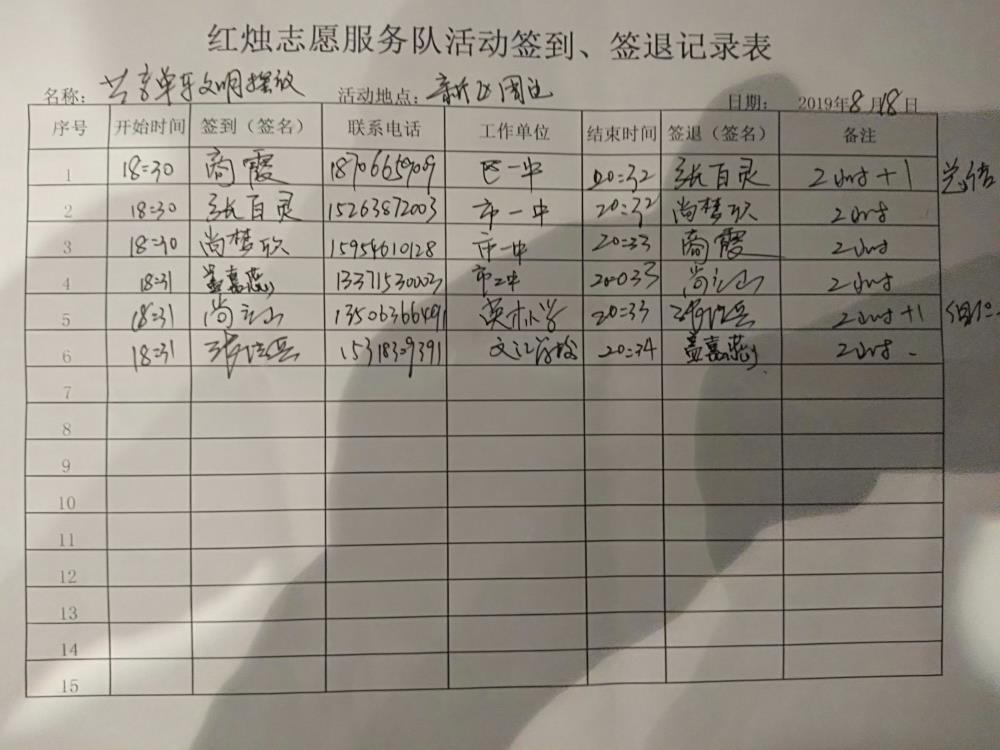 红烛志愿服务队活动签到、签退记录表
名称: 共享单车文明摆放 活动地点: 新区周边 日期: 2019年8月18日
序号 开始时间 签到（签名） 联系电话 工作单位 结束时间 签退（签名） 备注
1 18:30 商霞 18706659909 区一中 20:32 张百灵 2
2 18:30 张百灵 15263872003 市一中 20:32 尚梦欣 2
3 18:30 尚梦欣 15954610128 市一中 20:33 商霞 2
4 18:31 盖嘉燕 13371530003 市二中 20:033 尚立山 2
5 18:31 尚立山 13506366491 英才小学 20:33 2
6 18:31 15318309391 文汇学校 20:34 盖嘉燕 2
7
8
9
10
11
12
13
14
15